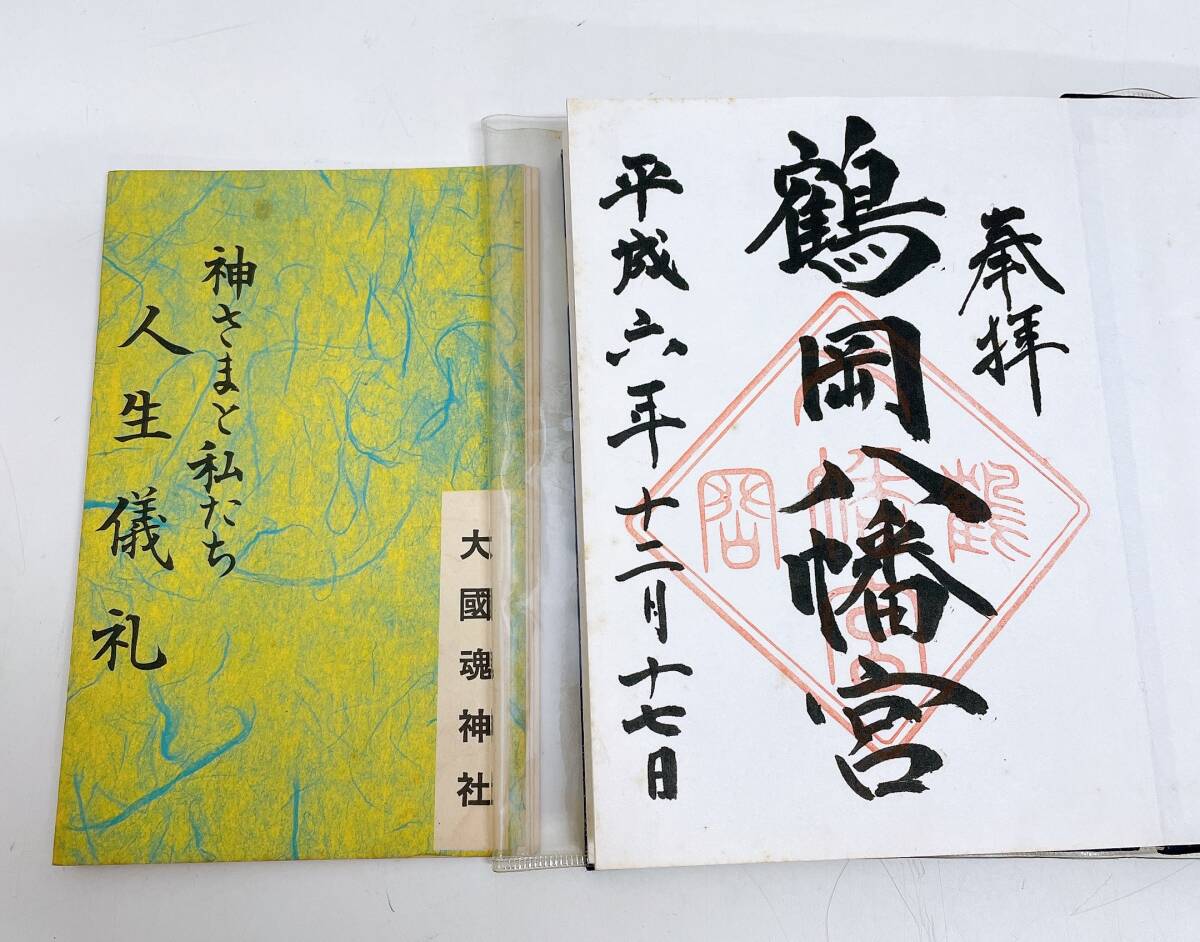 神さまと私たち
人生儀礼
大國魂神社
奉拝
鶴岡八幡宮
平成六年十二月十七日
鶴
岡